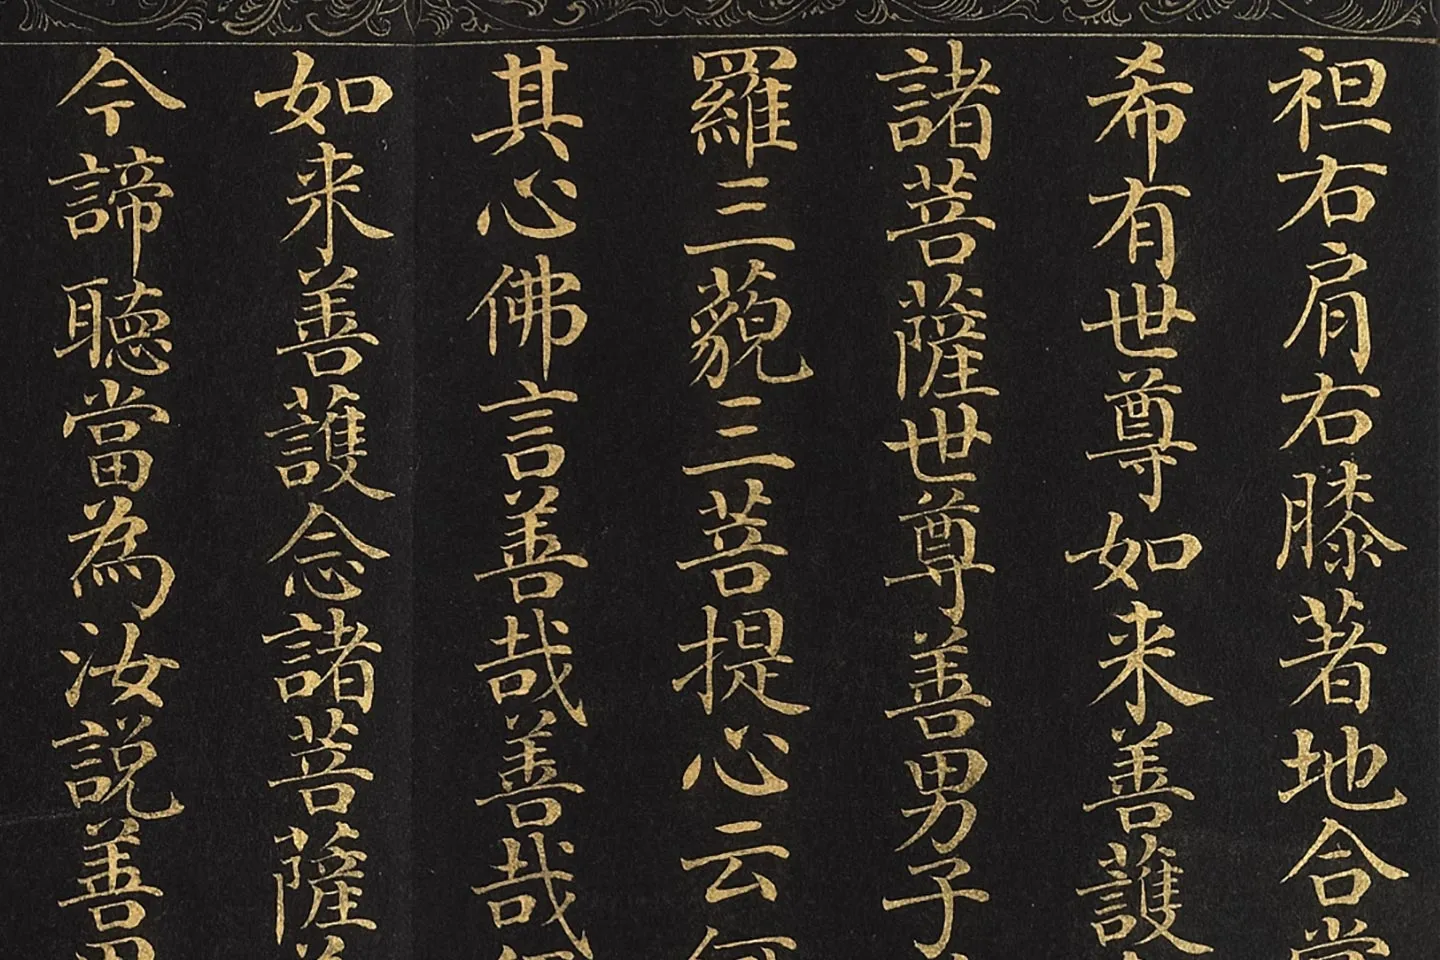 袒右肩右膝著地合掌
希有世尊如来善護
諸菩薩世尊善男子
羅三藐三菩提心云何
其心佛言善哉善哉
如来善護念諸菩薩
今諦聽當為汝說善男